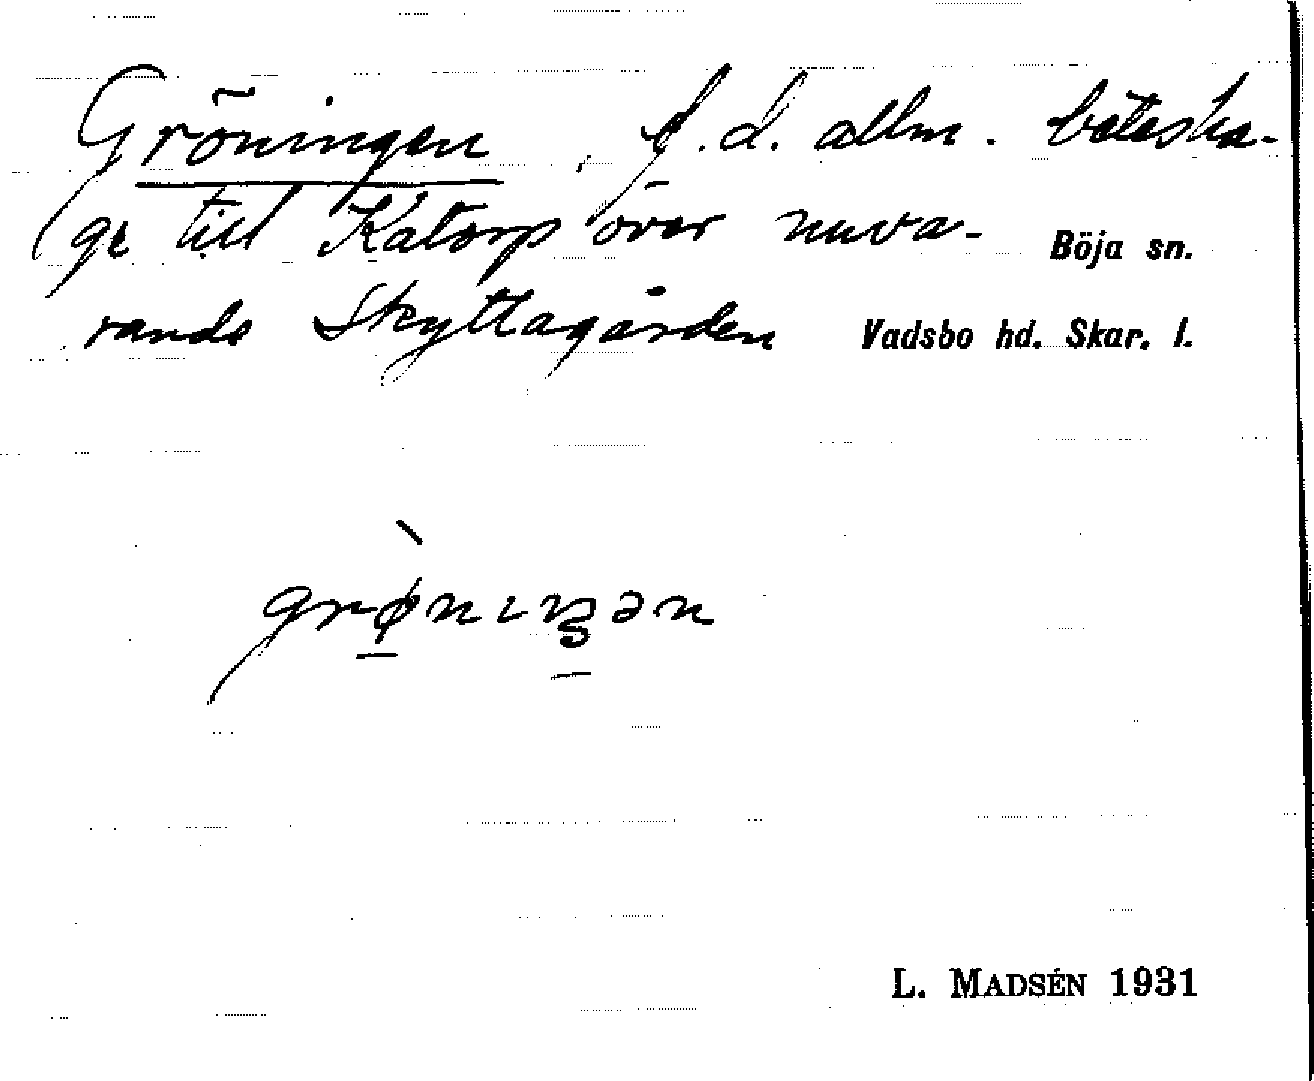 Gröningen, f.d. allm. beteska-
ge till Katorp över nuva-
Böja sn.
rande Skyttagården
Vadsbo hd. Skar. l.
grø̀nıŋən
L. MADSÉN 1931